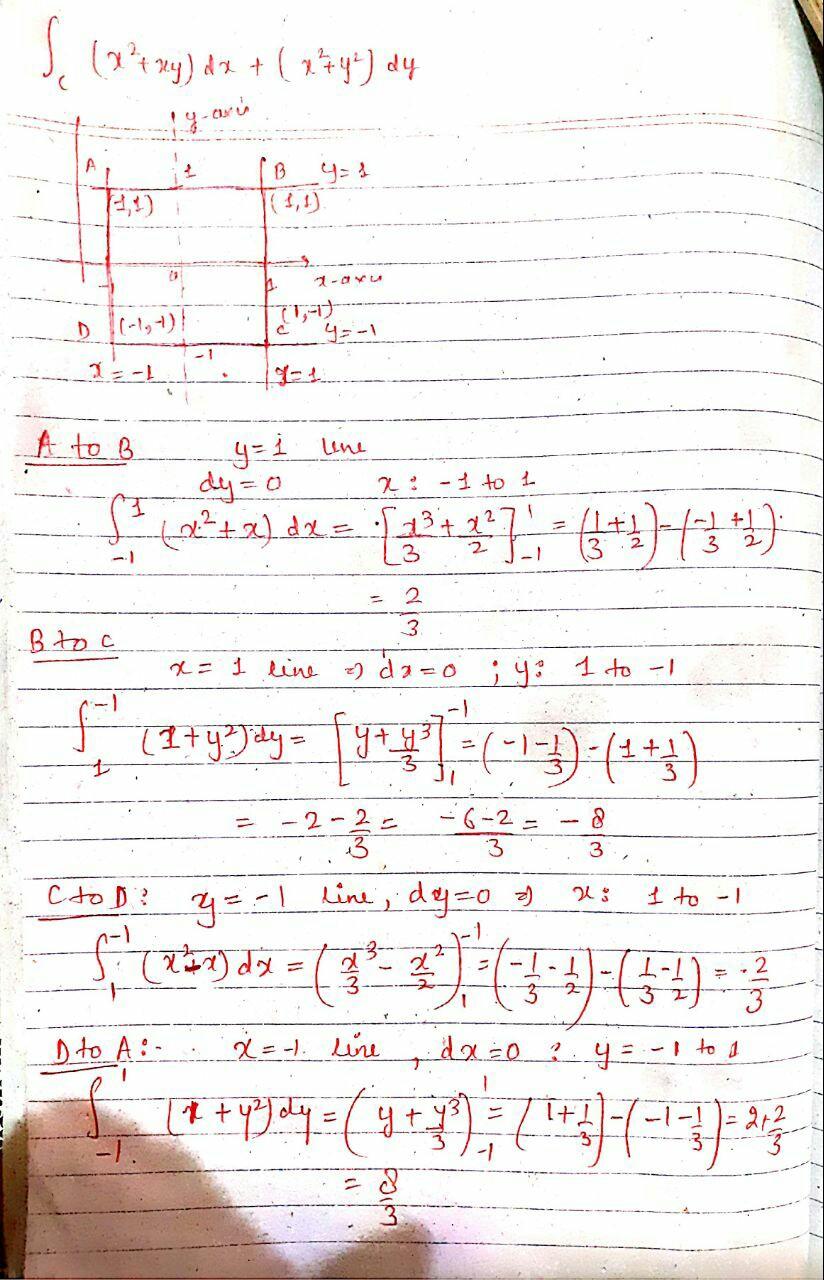 ∫_C (x²+xy) dx + (x²+y²) dy
y-axis
A 1 B y=1
(-1,1) (1,1)
-1 0 1 x-axis
D (-1,-1) (1,-1) C y=-1
x=-1 -1 x=1
A to B y=1 line
dy=0 x: -1 to 1
∫_{-1}^{1} (x²+x) dx = [x³/3 + x²/2]_{-1}^{1} = (1/3+1/2)-(-1/3+1/2)
= 2/3
B to C
x=1 line ⇒ dx=0 ; y: 1 to -1
∫_{1}^{-1} (1+y²)dy = [y+y³/3]_{1}^{-1} = (-1-1/3)-(1+1/3)
= -2-2/3 = (-6-2)/3 = -8/3
C to D: y=-1 line, dy=0 ⇒ x: 1 to -1
∫_{1}^{-1} (x²-x) dx = (x³/3 - x²/2)_{1}^{-1} = (-1/3-1/2)-(1/3-1/2) = -2/3
D to A:- x=-1 line, dx=0 : y=-1 to 1
∫_{-1}^{1} (1+y²)dy = (y+y³/3)_{-1}^{1} = (1+1/3)-(-1-1/3) = 2+2/3
= 8/3